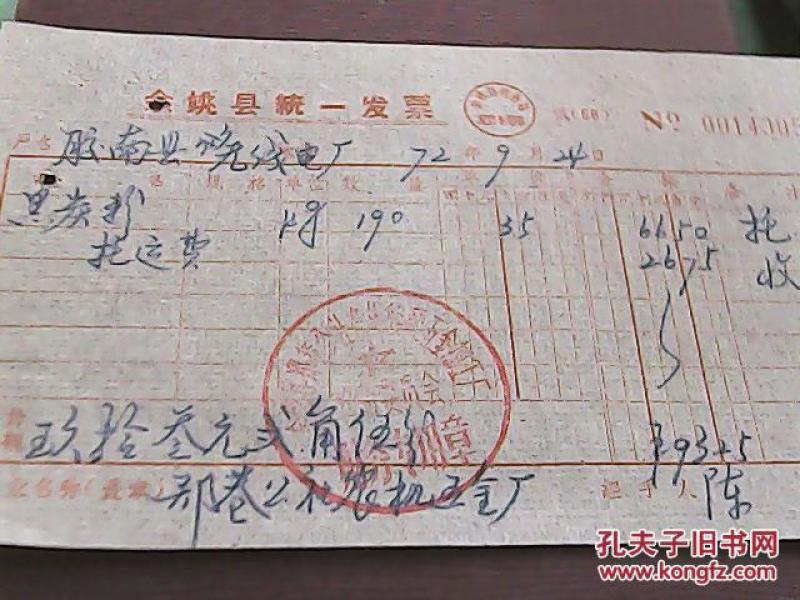 余姚县統一发票
(68) № 0014305
户名 胶南县无线电厂 72年9月24日
品名 规格 单位 数量 单价 金额 备注
黑炭粉 kg 190 35 6650 托
托运费 2675 收
玖拾叁元弍角伍分 ¥9325
企业名称(盖章) 郑巷公社农机五金厂 经手人 陈
孔夫子旧书网
www.kongfz.com